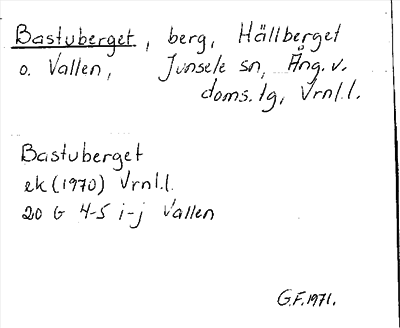 Bastuberget, berg, Hällberget
o. Vallen, Junsele sn, Ång. v.
doms.lg, Vrnl.l.
Bastuberget
ek (1970) Vrnl.l.
20 G 4-5 i-j Vallen
G.F. 1971.